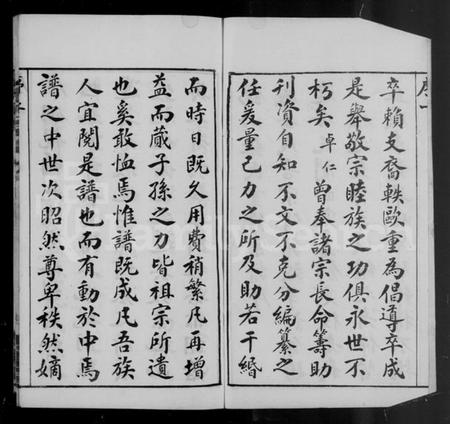 卒賴支裔軼歐重為倡導卒成
是舉敬宗睦族之功俱永世不
朽矣卓仁曾奉諸宗長命籌助
刊資自知不文不克分編纂之
任爰量己力之所及助若干緡
而時日既久用費稍繁凡再增
益而蕆子孫之力皆祖宗所遺
也奚敢恤焉惟譜既成凡吾族
人宜閱是譜也而有動於中焉
譜之中世次昭然尊卑秩然嫡